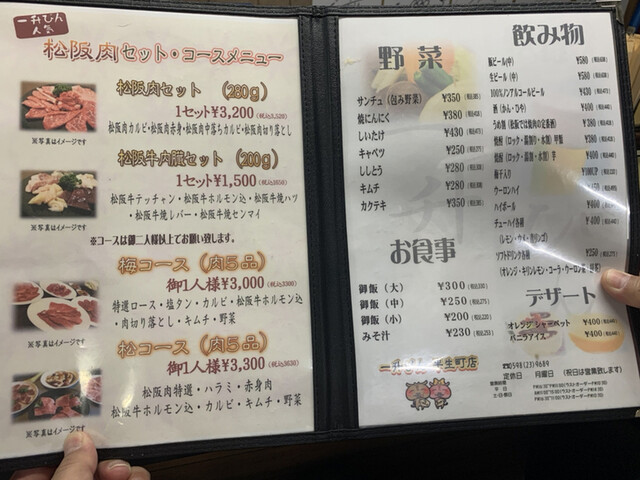 一升びん
人気
松阪肉セット・コースメニュー
松阪肉セット (280g)
1セット¥3,200
松阪肉カルビ・松阪肉赤身・松阪肉中落ちカルビ・松阪肉切り落とし
※写真はイメージです
松阪牛内臓セット (200g)
1セット¥1,500
松阪牛テッチャン・松阪牛ホルモン込・松阪牛焼ハツ
・松阪牛焼レバー・松阪牛焼センマイ
※写真はイメージです
※コースは御二人様以上でお願い致します。
梅コース (肉5品)
御1人様¥3,000 (税込3300)
特選ロース・塩タン・カルビ・松阪牛ホルモン込
・肉切り落とし・キムチ・野菜
※写真はイメージです
松コース (肉5品)
御1人様¥3,300 (税込3630)
松阪肉特選・ハラミ・赤身肉
松阪牛ホルモン込・カルビ・キムチ・野菜
※写真はイメージです
野菜
サンチュ(包み野菜) ¥350
焼にんにく ¥380
しいたけ ¥430
キャベツ ¥250
ししとう ¥280
キムチ ¥280
カクテキ ¥350
お食事
御飯(大) ¥300
御飯(中) ¥250
御飯(小) ¥200
みそ汁 ¥230
飲み物
瓶ビール(中) ¥580
生ビール(中) ¥580
100%ノンアルコールビール ¥430
酒(かん・ひや) ¥400
うめ酎(松阪では焼肉の定番酒) ¥380
焼酎(ロック・湯割り・水割) 甲類 ¥380
焼酎(ロック・湯割・水割) 芋 ¥400
梅干入り
ウーロンハイ
ハイボール ¥400
チューハイ各種 ¥400
(レモン・ウメ・青リンゴ)
ソフトドリンク各種 ¥250
デザート
オレンジシャーベット ¥400
バニラアイス ¥400
一升びん 平生町店
☎0598(23)9689
定休日 月曜日 (祝日は営業致します)
営業時間
平日